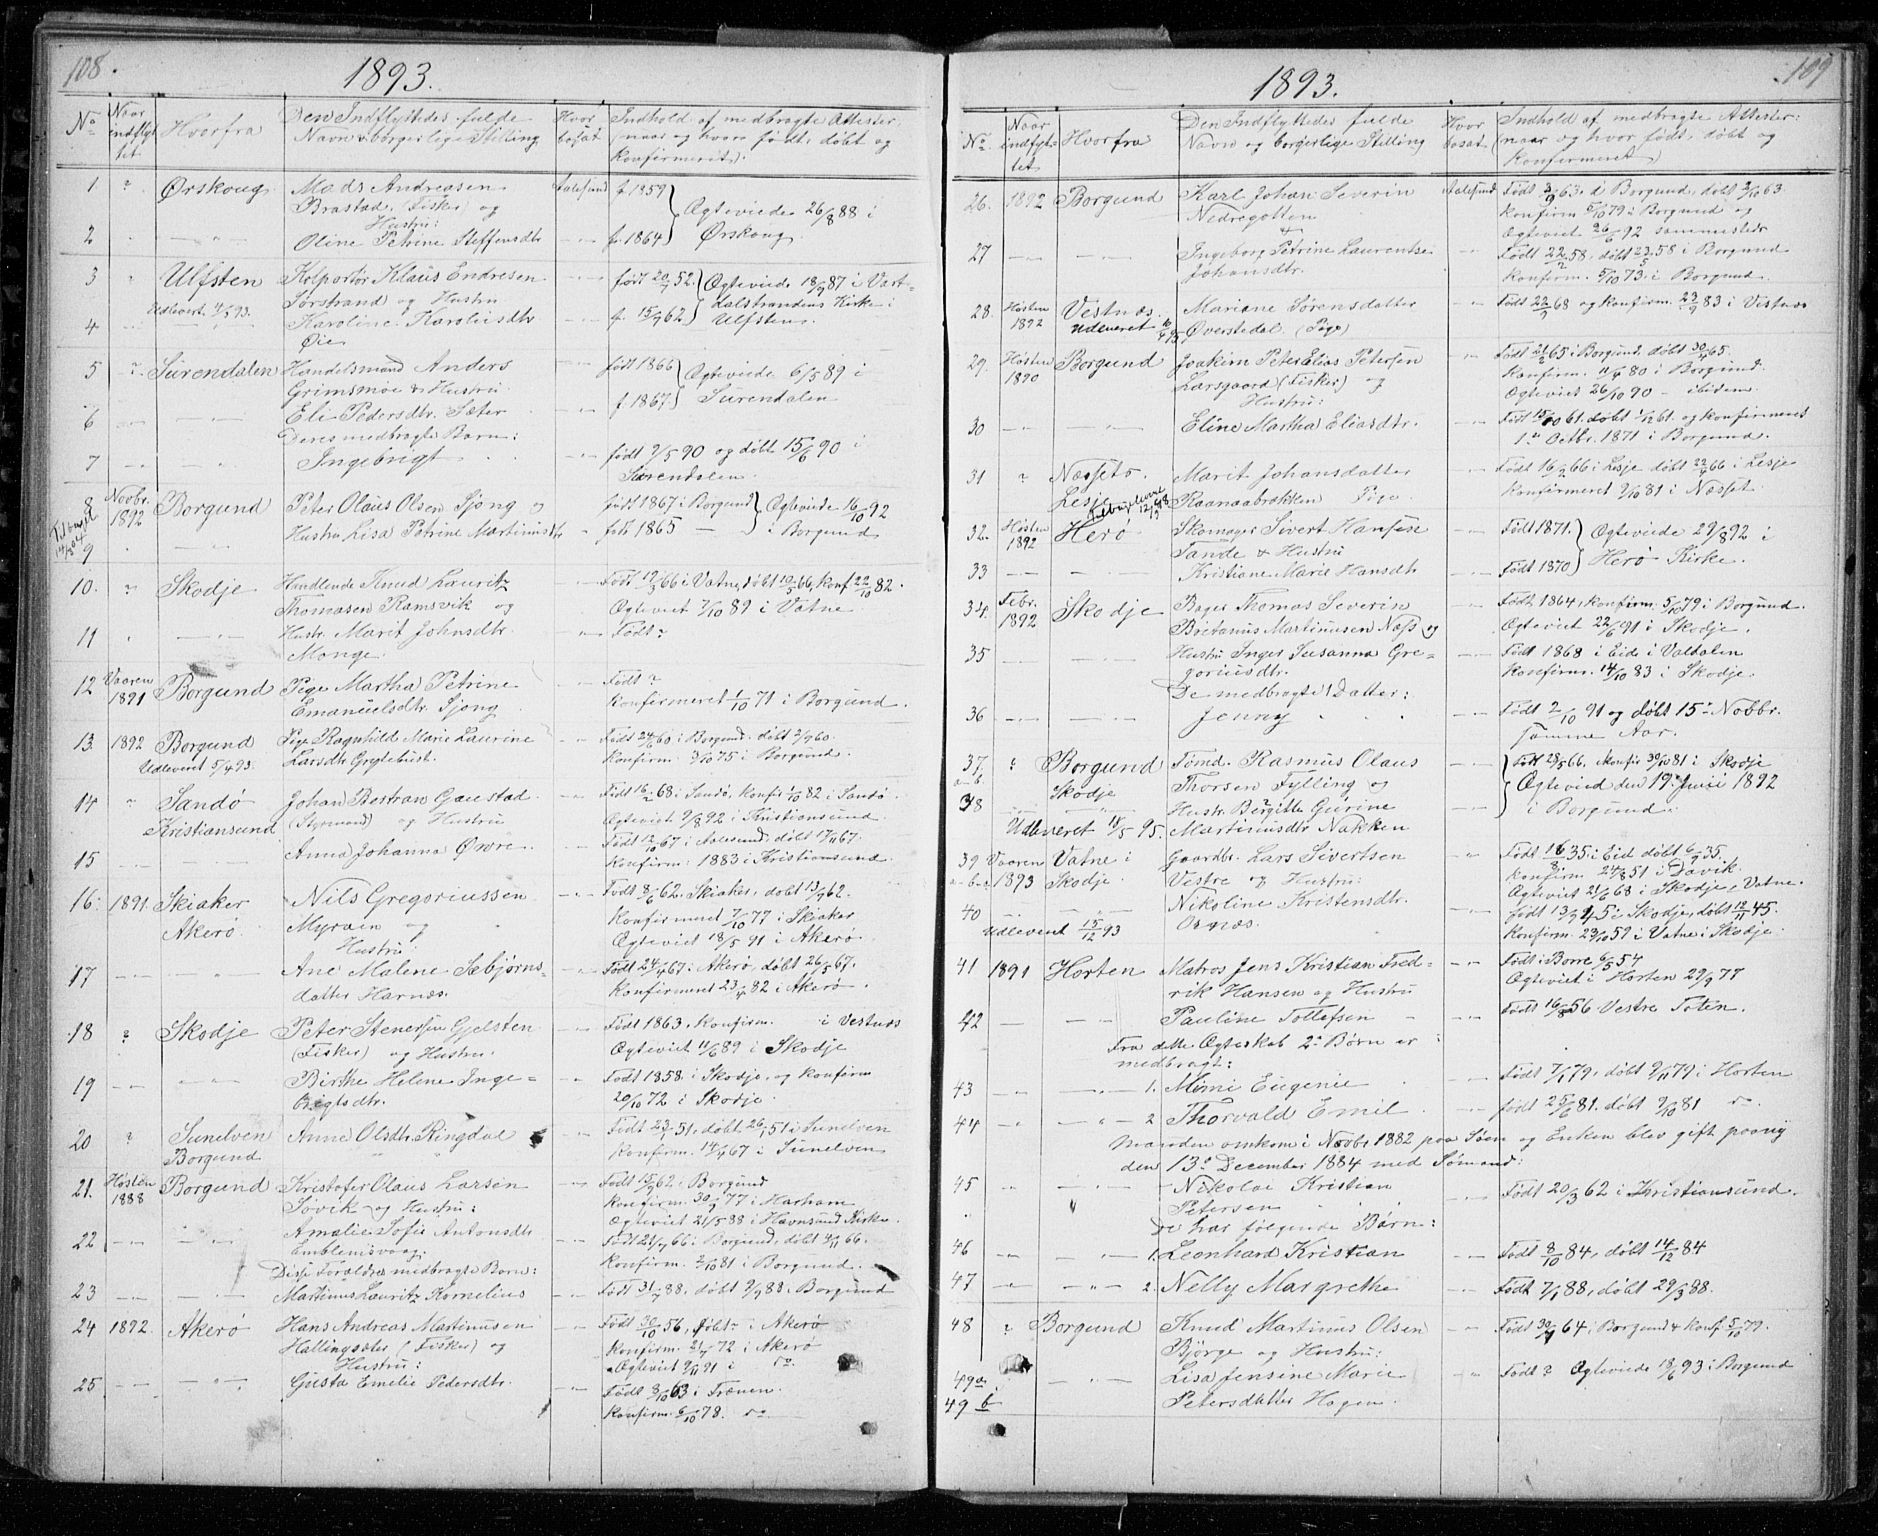 108.
1893.
No
Naar indflyttet.
Hvorfra
Den Indflyttedes fulde Navn & borgerlige Stilling
Hvor bosat
Indhold af medbragte Attester, (naar og hvor født, døbt og konfirmerit).
1 ? Ørskoug Mads Andreasen Aalesund f. 1859
Brastad, (Fisker) og Ægteviede 26/8 88 i
Hustru:
2 Oline Petrine Steffensdtr f. 1864 Ørskoug.
3 Ulfsten Kolportør Klaus Endresen født 20/7 52. Ægteviede 18/9 87 i Vart-
Udlevert. 4/5 93. Sørstrand og Hustru dalstrandens Kirke i
4 Karoline Karoliisdtr f. 15/9 62 Ulfsten.
Øie
5 ? Surendalen Handelsmand Anders født 1866 Ægteviede 6/5 89 i
Grimsmoe & Hustru
6 Eli Pedersdtr. Sæter f. 1867 Surendalen
Deres medbragte Barn:
7 Ingebrigt født 2/5 90 og døbt 15/6 90 i
Surendalen.
8 Novbr. 1892 Borgund Peter Olaus Olsen Sjong og født 1867 i Borgund Ægteviede 16/10 92
9 Hustru Lisa Petrine Martinusdtr 1865 i Borgund
10. ? Skodje Handlende Knud Lauritz Født 19/3 66 i Vatne, døbt 10/5 66, konf 22/10 82.
Thomasen Ramsvik og Ægteviet 7/10 89 i Vatne
11 Hustr. Marit Johnsdtr. Født?
Monge.
12 Vaaren 1891 Borgund Pige Martha Petrine Født?
Emanuelsdtr. Sjong Konfirmeret 1/10 71 i Borgund.
13. 1892 Borgund Pige Ragnhild Marie Laurine Født 24/6 60 i Borgund. døbt 2/9 60.
Udleveret 5/4 93. Larsdtr Grytebust. Konfirm. 3/10 75 i Borgund.
14 ? Sandø Johan Bertran Gaustad Født 16/2 68 i Sandø, konfir 1/10 82 i Sandø
Kristiansund (Styrmand) og Hustru Ægteviet 9/8 92 i Kristiansund.
15 Anna Johanna Øvre. Født 12/10 67 i Aalesund, døbt 17/11 67.
Konfirm: 1883 i Kristiansund.
16: 1891. Skiaker Nils Gregoriussen Født 8/6 62. Skiaker, døbt 13/9 62.
Akerø. Myrvin og Konfirmeret 7/10 77 i Skiaker
Hustru Ægteviet 18/5 91 i Akerø.
17 Ane Malene Sæbjørns- Født 24/4 67 i Akerø, døbt 26/5 67.
datter Harnæs. Konfirmeret 23/4 82 i Akerø.
18 ? Skodje Peter Stenersen Gjelsten Født 1863, Konfirm. i Vestnæs
(Fisker) og Hustru. Ægteviet 11/6 89 i Skodje
19 Birthe Helene Inge- Født 1858 i Skodje, og konfirm
brigtsdtr. 20/10 72 i Skodje.
20 ? Sunelven Anne Olsdtr Ringdal Født 23/1 51, døbt 26/1 51 i Sunelven
Borgund Konfirm. 14/4 67 i Sunelven
21. Høsten 1888 Borgund Kristofer Olaus Larsen Født 15/9 62 i Borgund
Søvik og Hustru: Konfirm. 30/9 77 i Harham
Ægteviet 21/5 88 i Havnsund Kirke.
22 Amalie Sofie Antonsdtr Født 21/7 66 i Borgund, døbt 4/11 66.
Emblemsvaag. Konfirm. 2/10 81 i Borgund.
Disse Forældre medbragte Barn:
23 Martinus Lauritz Kornelius Født 31/7 88, døbt 9/9 88. Borgund
24 1892. Akerø Hans Andreas Martinusen Født 30/10 56, døbt i Akerø
Hallingsæter (Fisker) og Konfirm. 21/4 72 i Akerø
Hustru: Ægteviet 9/11 91 i do.
25 Gusta Emelie Pedersdtr. Født 8/10 63 i Frænen.
Konfirm. 6/10 78. do
109
1893.
No.
Naar indflyttet
Hvorfra
Den Indflyttedes fulde Navn og borgerlige Stilling
Hvor bosat
Indhold af medbragte Attester: (naar og hvor født, døbt og konfirmeret)
26. 1892 Borgund Karl Johan Severin Aalesund Født 3/9 63. i Borgund, døbt 3/10 63.
Nedregotten Konfirm 5/10 79 i Borgund og
& Ægteviet 26/6 92 sammesteds
27 Ingeborg Petrine Laurentse Født 22/2 58, døbt 23/5 58 i Borgund
Johansdtr. Konfirm. 5/10 73 i Borgund.
28. Høsten 1892 Vestnæs Mariane Sørensdatter Født 22/9 68 og konfirm. 23/9 83 i Vestnæs
Udleveret Øverstedal (Pige)
29. Høsten 1890 Borgund Joakim Peter Elias Petersen Født 21/2 65 i Borgund, døbt 30/4 65.
Larsgaard (Fisker) og Konfirm. 11/4 80 i Borgund.
Hustru: Ægteviet 26/10 90 – ibidem
30 Eline Martha Eliasdtr. Født 15/10 61. døbt 1/12 61. og konfirmeret
1ste Octbr. 1871 i Borgund.
31 ? Næsset Marit Johansdatter Født 16/2 66 i Lesje døbt 22/4 66 i Lesje
Lesje Raanaabrækken Pige Konfirmeret 2/10 81 i Næsset.
32. Høsten 1892 Herø Skomager Sivert Hansen Født 1871. Ægteviede 29/8 92 i
Tande & Hustru Herø Kirke.
33 Kristiane Marie Hansdtr Født 1870
34. Febr. 1892 Skodje Bager Thomas Severin Født 1864, konfirm. 5/10 79 i Borgund.
Britanus Martinusen Næss og Ægteviet 22/6 91 i Skodje.
35 Hustru Inger Susanna Gre- Født 1868 i Eid i Valdalen
goriusdtr. Konfirm. 14/10 83 i Skodje.
De medbragte 1 Datter:
36 Jenny Født 2/10 91 og døbt 15de Novbr.
samme Aar.
37 ? Borgund Tømd. Rasmus Olaus Født 28/5 66, Konfir 30/10 81 i Skodje
Skodje Thorsen Fylling og Ægteviet den 19de Juni 1892
38 Hustr. Bergitte Gurine i Borgund.
Udleveret 18/5 95. Martinusdtr Nakken
39 Vaaren 1893 Vatne i Skodje. Gaardbr. Lars Sivertsen Født 16/8 35 i Eid døbt 6/9 35.
Vestre og Hustru: Konfirm 24/8 51 i Davik.
Ægteviet 21/6 68 i Skodje, Vatne.
40 Nikoline Kristensdtr. Født 13/9 45 i Skodje, døbt 12/11 45.
Udleveret 15/12 93 Osnæs. Konfirm. 23/10 59 i Vatne i Skodje.
41 1891 Horten Matros Jens Kristian Fred- Født i Borre 6/5 54
rik Hansen og Hustru Ægteviet i Horten 29/9 77
42 Pauline Tollefsen Født 16/8 56 Vestre Toten.
Fra dette Ægteskab 2de Børn er
medbragt:
43 1. Mimi Eugenie Født 7/1 79, døbt 9/11 79 i Horten
44 2 Thorvald Emil født 25/6 81. døbt 9/10 81 do
Manden omkom i Novbr 1882 paa Søen og Enken blev gift paany
den 13de December 1884 med Sømand:
45 Nikolai Kristian Født 20/3 62 i Kristiansund.
Petersen
De har følgende Børn:
46 1. Leonhard Kristian Født 8/10 84, døbt 14/12 84
47 2. Nelly Margrethe Født 7/1 88, døbt 29/3 88.
48 ? Borgund Knud Martinus Olsen Født 30/9 64, Borgund & konf. 5/10 79.
Bjørge og Hustru:
49 a. Lisa Jensine Marie Født ? Ægteviede 18/6 93 i Borgund
49 b Petersdatter Hagen.